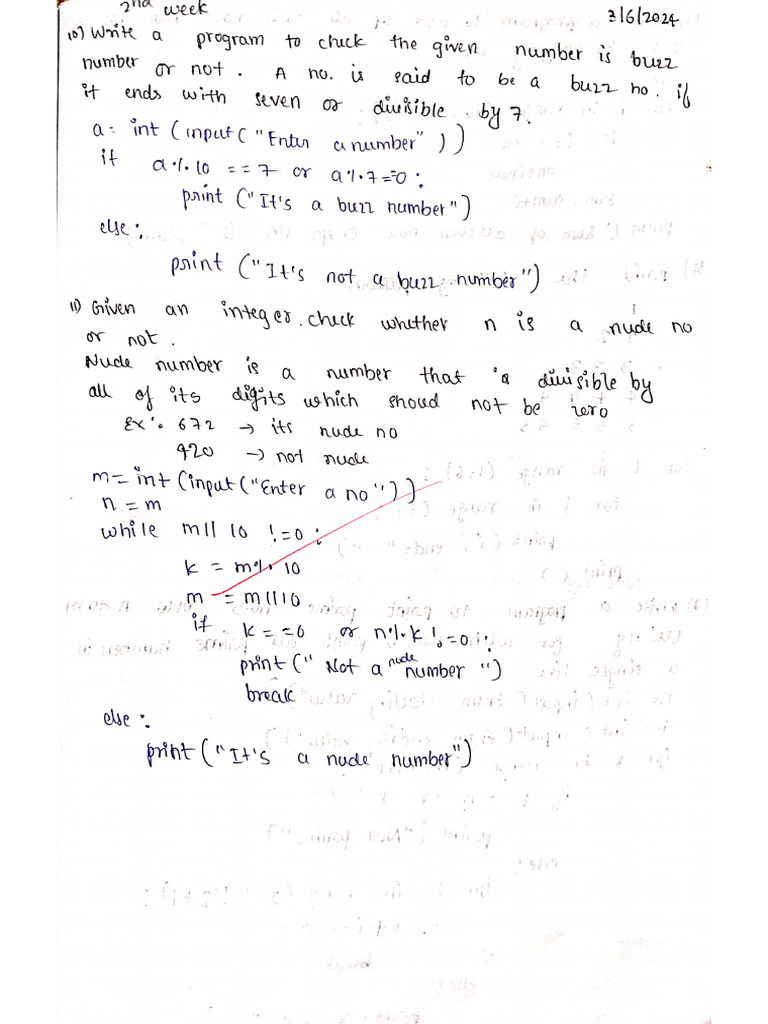 2nd week
3/6/2024
10) Write a program to chuck the given number is buzz
number or not. A no. is said to be a buzz no. if
it ends with seven or divisible by 7.
a= int (input ("Enter a number"))
if a%10 ==7 or a%7==0:
print ("It's a buzz number")
else:
print ("It's not a buzz number")
11) Given an integer. check whether n is a nude no
or not.
Nude number is a number that is divisible by
all of its digits which should not be zero
Ex: 672 → its nude no
420 → not nude
m=int(input("Enter a no"))
n=m
while m//10 !=0:
k = m%10
m = m//10
if k==0 or n%k!=0:
print(" Not a nude number ")
break
else:
print("It's a nude number")